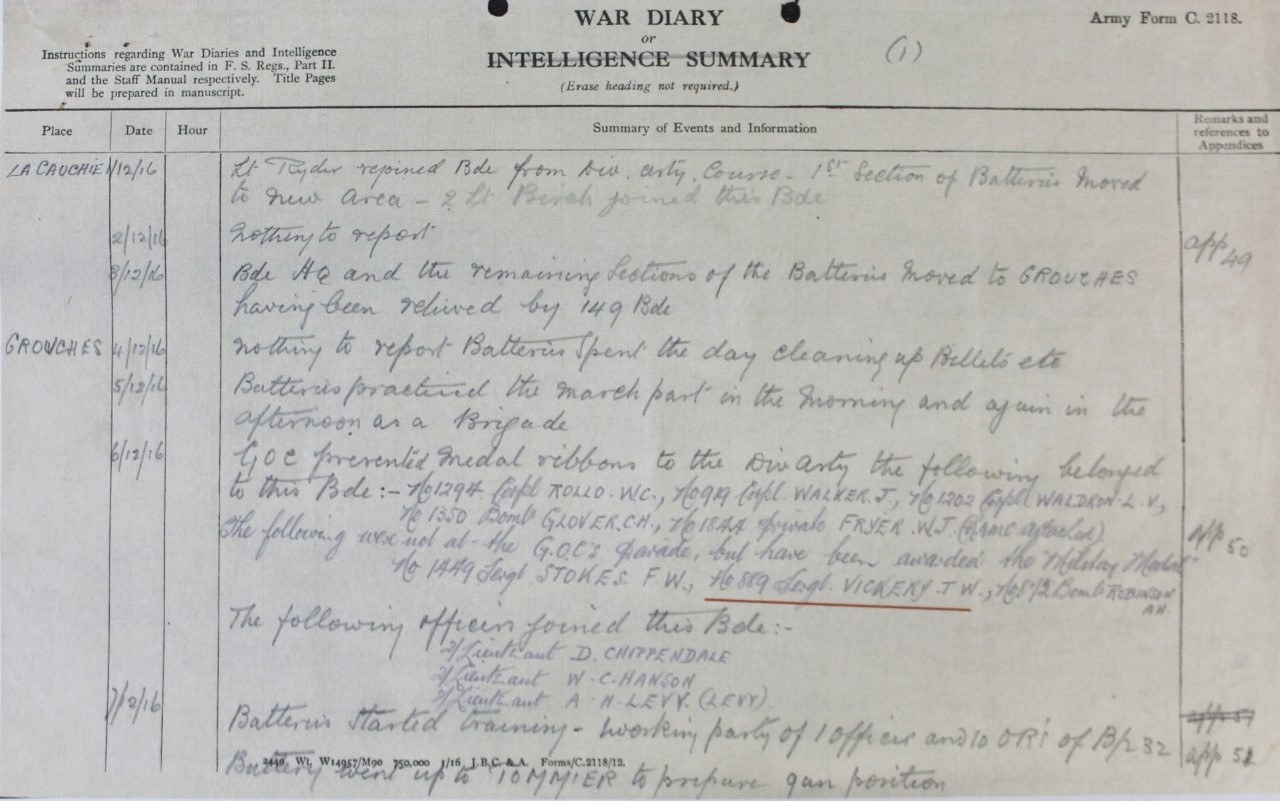 WAR DIARY
or
INTELLIGENCE SUMMARY
(Erase heading not required.)
(1)
Army Form C. 2118.
Instructions regarding War Diaries and Intelligence
Summaries are contained in F. S. Regs., Part II.
and the Staff Manual respectively. Title Pages
will be prepared in manuscript.
Place Date Hour Summary of Events and Information Remarks and
references to
Appendices
LA CAUCHIE 1/12/16 Lt Ryder rejoined Bde from Div. Arty. Course - 1st Section of Batteries moved
to new area - 2 Lt Birch joined this Bde
2/12/16 Nothing to report app 49
3/12/16 Bde HQ and the remaining Sections of the Batteries moved to GROUCHES
having been relived by 149 Bde
GROUCHES 4/12/16 Nothing to report Batteries Spent the day cleaning up Billets etc
5/12/16 Batteries practised the march part in the morning and again in the
afternoon as a Brigade
6/12/16 GOC presented medal ribbons to the Div Arty the following belonged
to this Bde :- No 1294 Corpl ROLLO. W.C., No 919 Corpl. WALKER. J., No 1202 Corpl. WALDRON. L. V.,
No 1350 Bomb GLOVER. C.H., No 1844 Private FRYER. W.J. (RAMC attached)
The following were not at the G.O.C's parade, but have been awarded the "Military Medal" app 50
No 1449 Sergt STOKES. F W., No 889 Sergt. VICKERY. T W., No 872 Bomb ROBINSON
A H.
The following officers joined this Bde :-
2/Lieutenant D. CHIPPENDALE
2/Lieutenant W. C. HANSON
2/Lieutenant A. H. LEVY. (LEVY)
7/12/16 Batteries Started training - working party of 1 officer and 10 ORS of B/232 app 51
Battery went up to POMMIER to prepare gun position app 51
2449 Wt. W14957/M90 750,000 1/16 J.B.C. & A. Forms/C.2118/12.